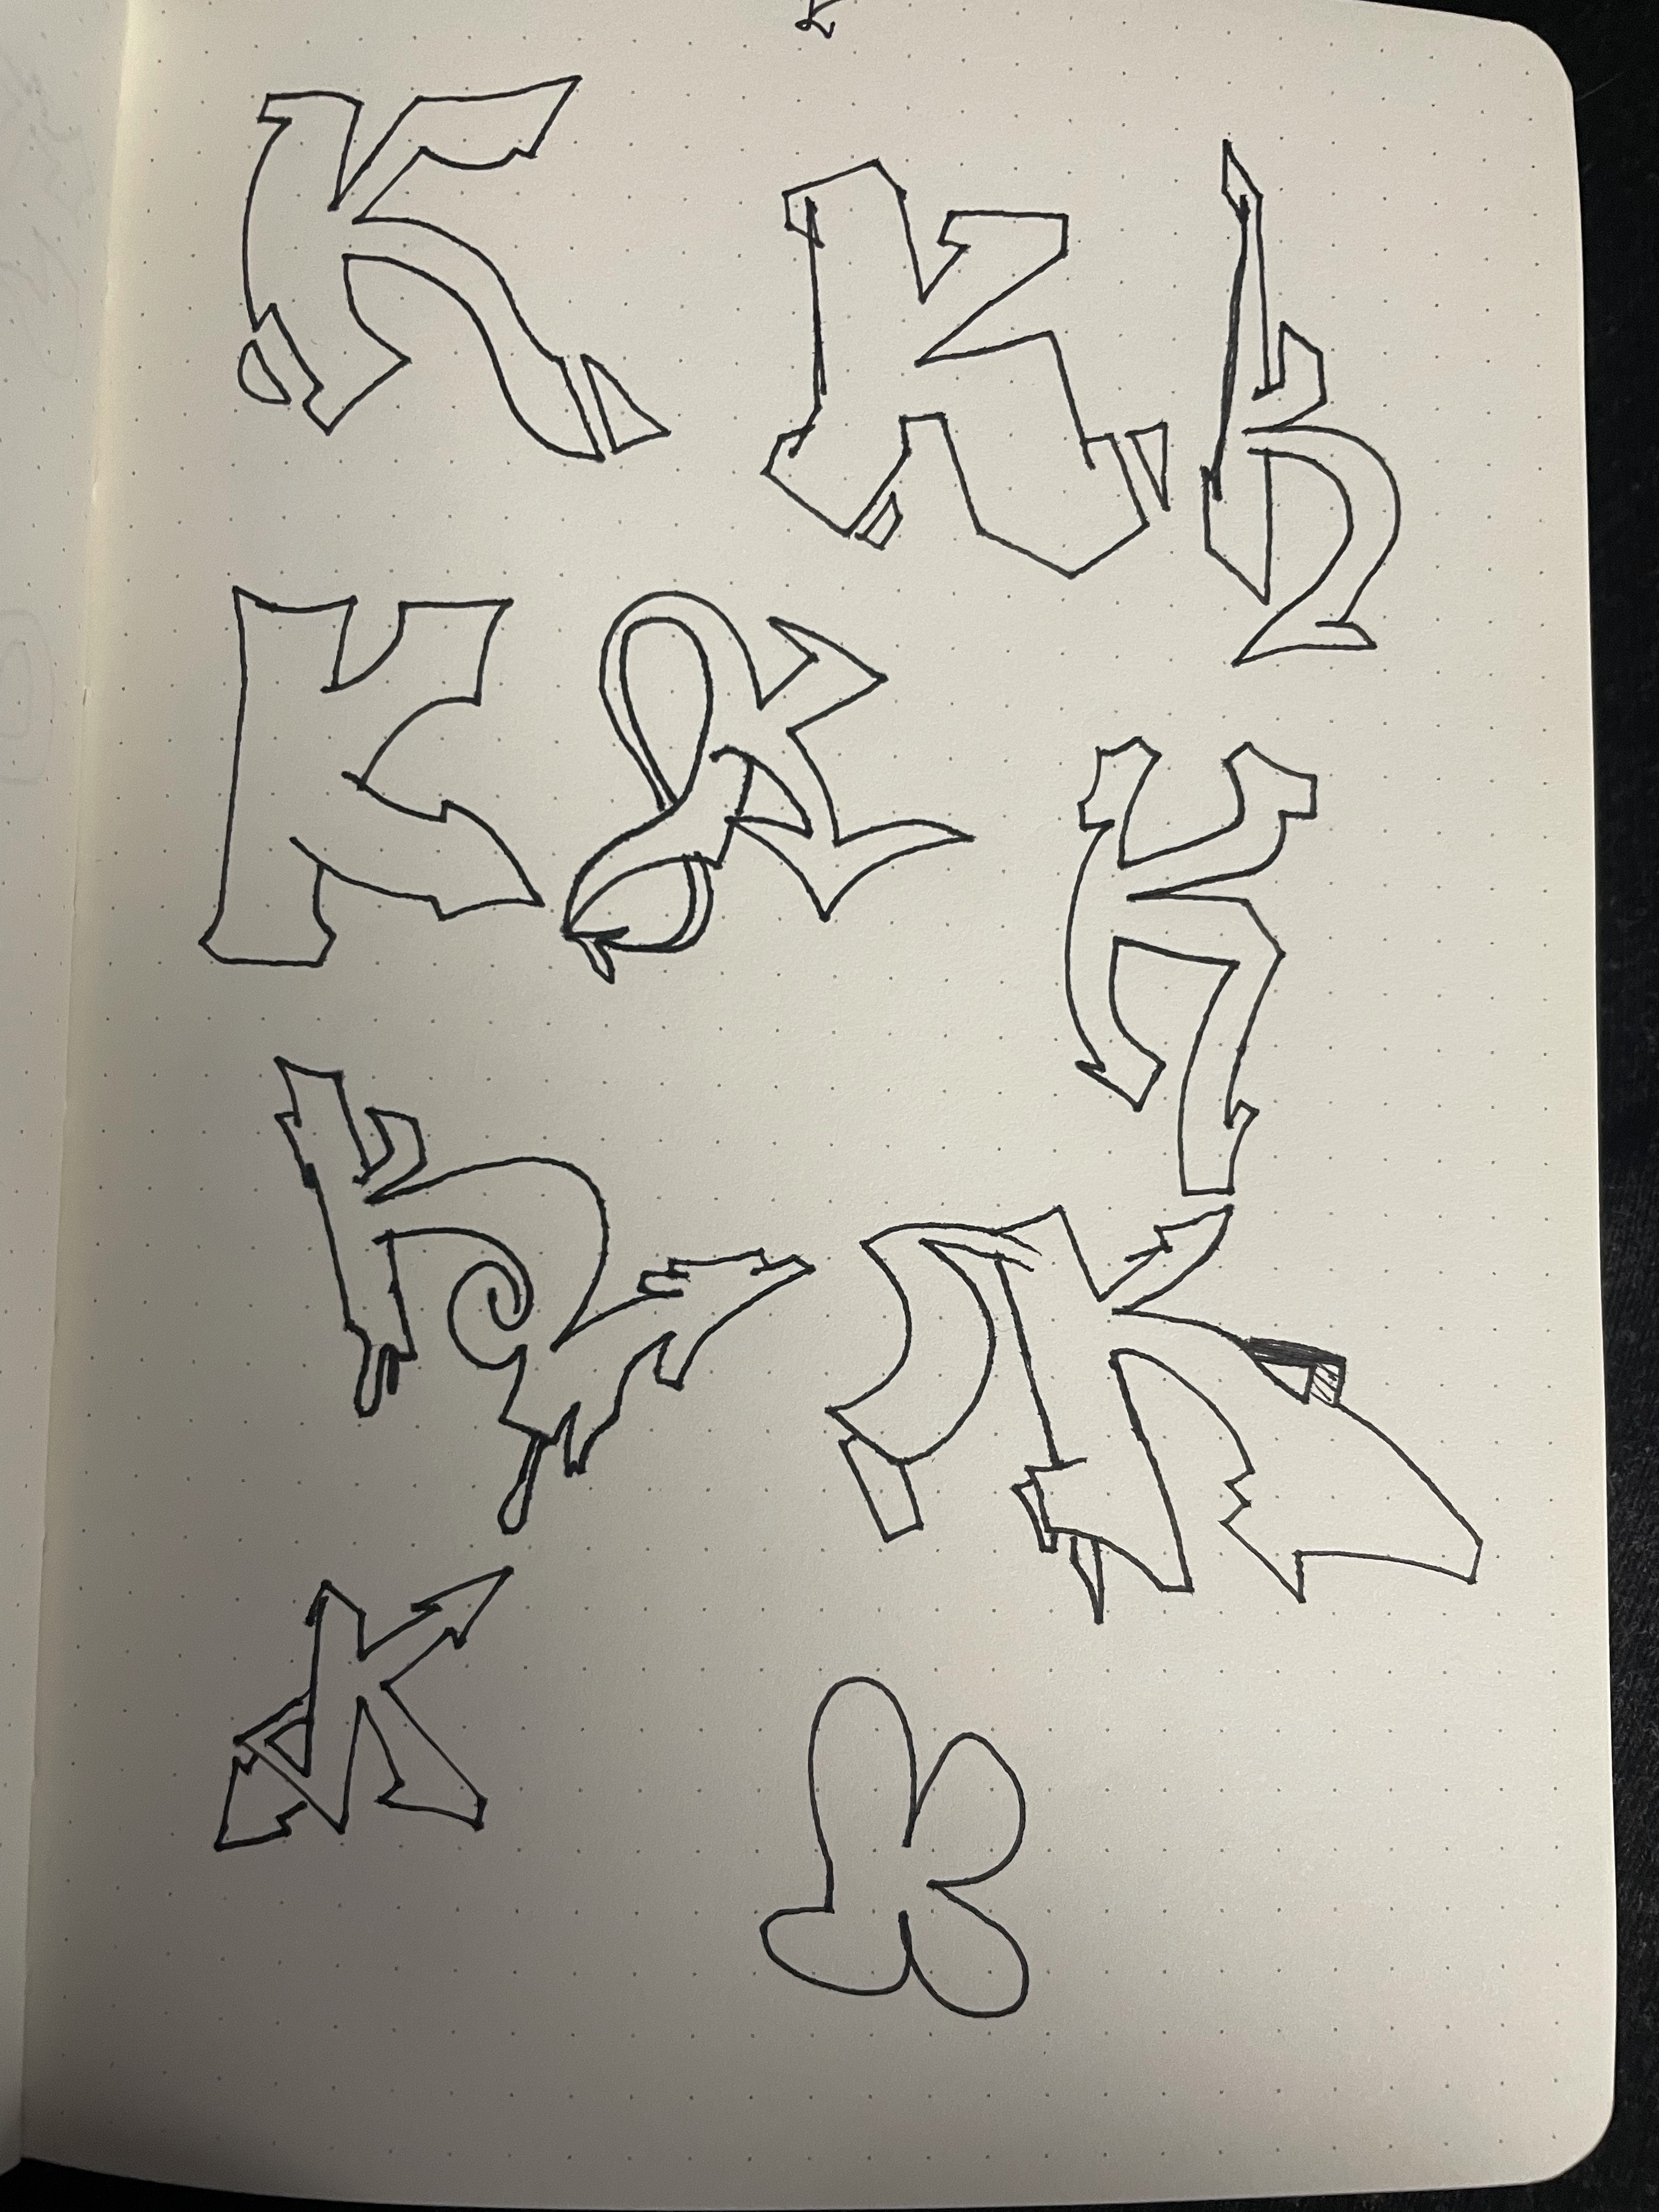 K K K
K K K
K K
K K